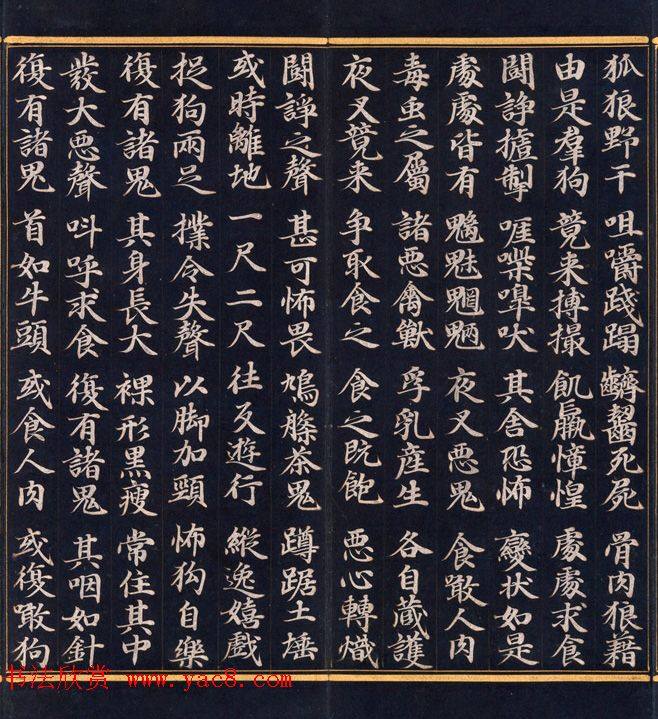 狐狼野干 咀嚼踐蹋 齩齧死屍 骨肉狼藉
由是羣狗 竟来搏撮 飢羸慞惶 處處求食
鬪諍摣掣 啀喍嘷吠 其舍恐怖 變状如是
處處皆有 魑魅魍魎 夜叉悪鬼 食噉人肉
毒虫之屬 諸悪禽獸 孚乳産生 各自藏護
夜叉竟来 争取食之 食之既飽 悪心轉熾
鬪諍之聲 甚可怖畏 鳩槃茶鬼 蹲踞土埵
或時離地 一尺二尺 往反遊行 縱逸嬉戲
捉狗兩足 撲令失聲 以脚加頸 怖狗自樂
復有諸鬼 其身長大 裸形黒瘦 常住其中
發大悪聲 叫呼求食 復有諸鬼 其咽如針
復有諸鬼 首如牛頭 或食人肉 或復噉狗
书法欣赏 www.yac8.com